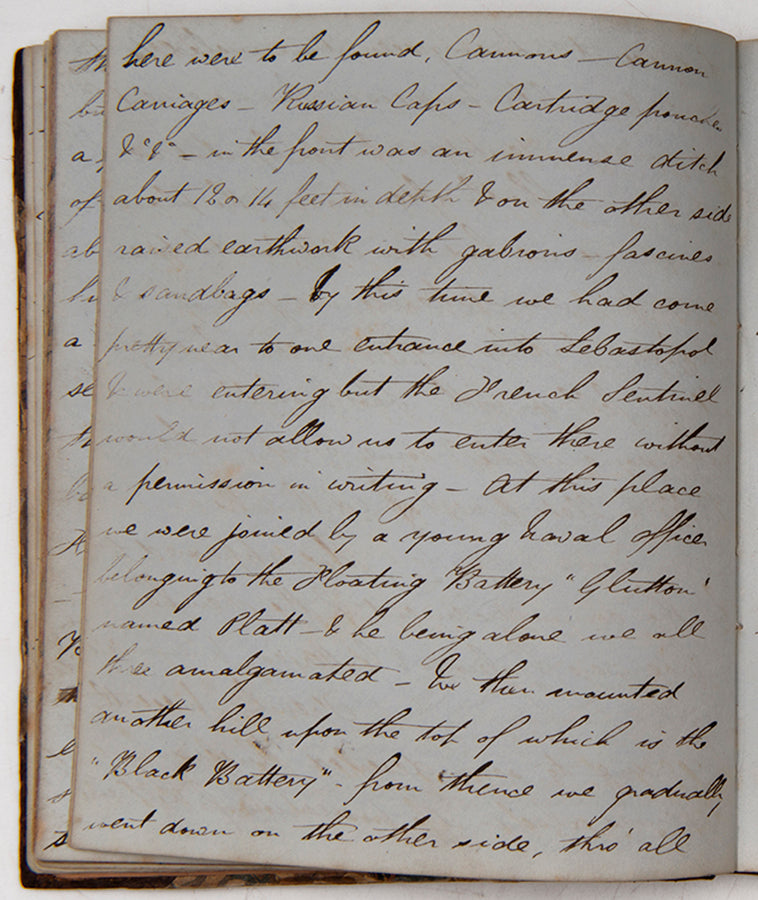 here were to be found, Cannons – Cannon
Carriages – Russian Caps – Cartridge pouches
&c &c – in the front was an immense ditch
about 12 or 14 feet in depth & on the other side
raised earthwork with gabions – fascines
& sandbags – By this time we had come
pretty near to one entrance into Sebastopol
& were entering but the French Sentinel
would not allow us to enter there without
a permission in writing – At this place
we were joined by a young Naval officer
belonging to the Floating Battery "Glutton"
named Platt – & he being alone we all
three amalgamated – We then mounted
another hill upon the top of which is the
"Black Battery" – from thence we gradually
went down on the other side, thro' all